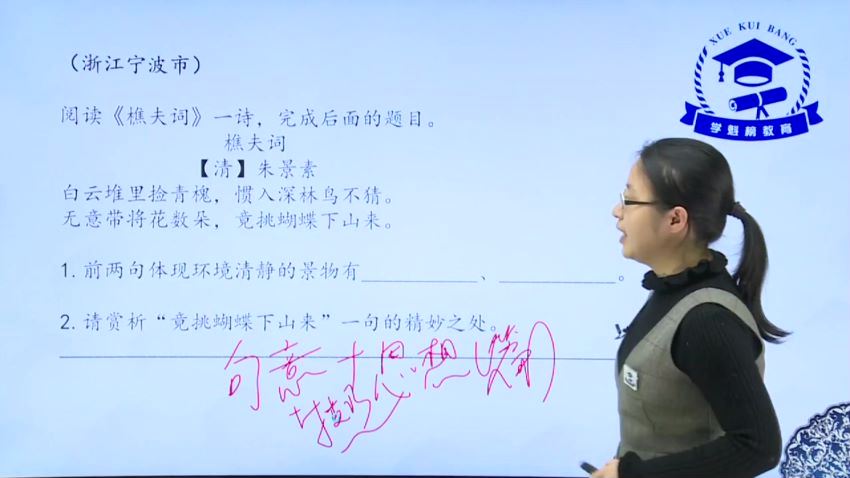 XUE KUI BANG
学魁榜教育
（浙江宁波市）
阅读《樵夫词》一诗，完成后面的题目。
樵夫词
【清】朱景素
白云堆里捡青槐，惯入深林鸟不猜。
无意带将花数朵，竟挑蝴蝶下山来。
1. 前两句体现环境清静的景物有__________、__________。
2. 请赏析“竟挑蝴蝶下山来”一句的精妙之处。
句意十思想
技巧